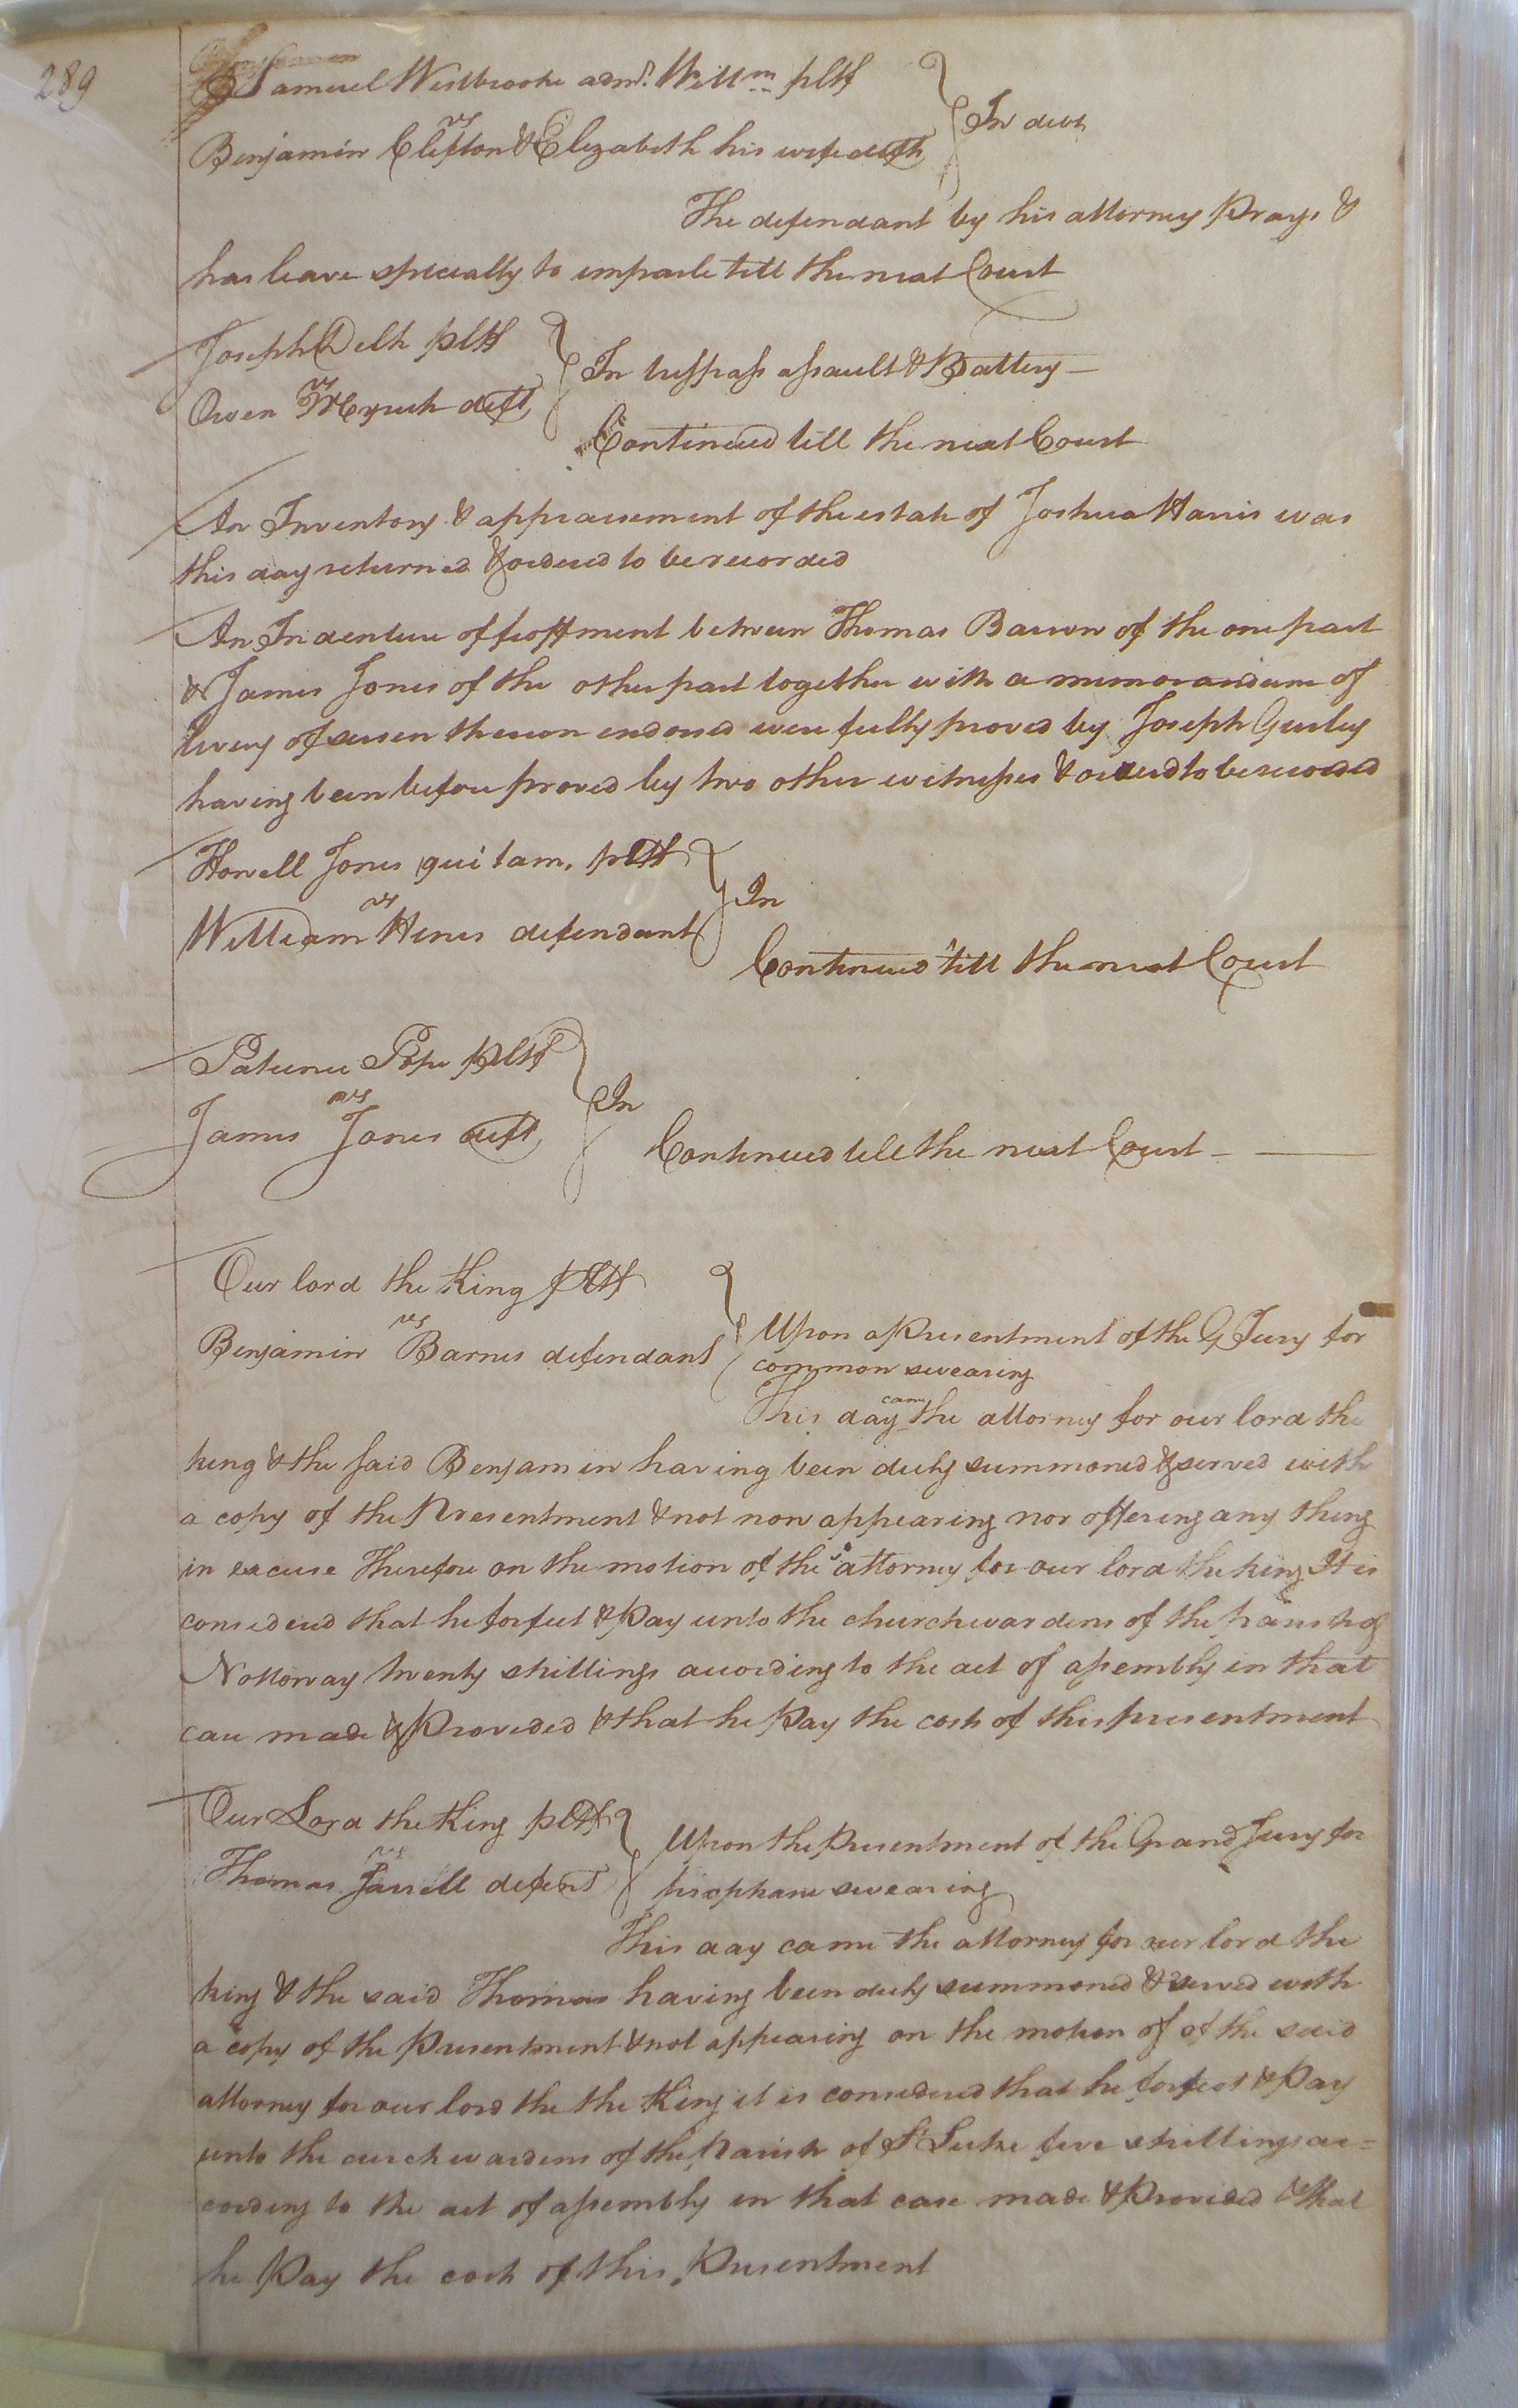 289
Samuel Westbrooke admr. Willm pltf
vs
In debt
Benjamin Clifton & Elizabeth his wife defts
The defendant by his attorney prays &
has leave specially to imparle till the next Court
Joseph Delk pltf
vs
In tresspass assault & Battery
Owen Myrick deft
Continued till the next Court
An Inventory & appraisement of the estate of Joshua Harris was
this day returned & ordered to be recorded
An Indenture of feoffment between Thomas Barrow of the one part
& James Jones of the other part together with a memorandum of
livery of seisen thereon endorsed were fully proved by Joseph Gurley
having been before proved by two other witnesses & ordered to be recorded
Howell Jones qui tam. pltf
vs
In
William Hines defendant
Continued till the next Court
Patience Pope pltf
vs
In
James Jones deft
Continued till the next Court
Our lord the King pltf
vs
Benjamin Barnes defendant
Upon a Presentment of the G Jury for
common swearing
This day came the attorney for our lord the
king & the said Benjamin having been duly summoned & served with
a copy of the Presentment & not now appearing nor offering any thing
in excuse Therefore on the motion of the attorney for our lord the king It is
considered that he forfeit & Pay unto the churchwardens of the parish of
Nottoway twenty shillings according to the act of assembly in that
case made & Provided & that he Pay the costs of this presentment
Our Lord the King pltf
vs
Thomas Jarrell defent
Upon the Presentment of the Grand Jury for
prophane swearing
This day came the attorney for our lord the
king & the said Thomas having been duly summoned & served with
a copy of the Presentment & not appearing on the motion of of the said
attorney for our lord the the King it is considered that he forfeit & Pay
unto the curchwardens of the Parish of St Luke five shillings ac=
cording to the act of assembly in that case made & Provided & that
he Pay the costs of this Presentment